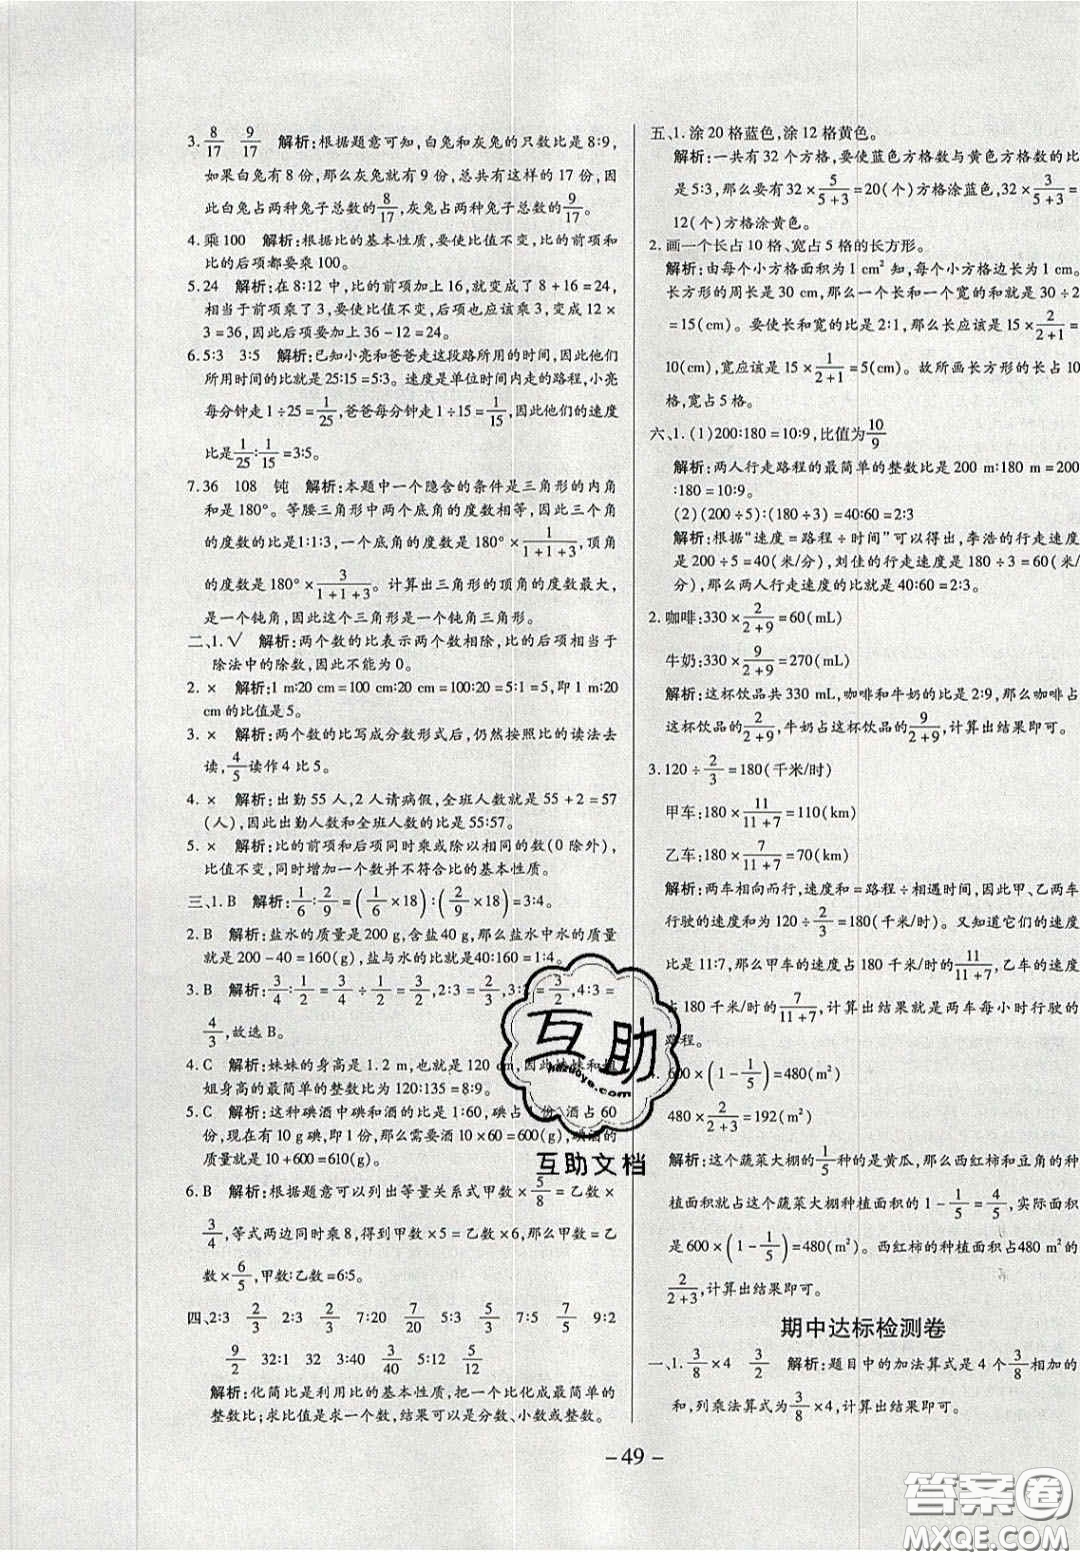 3. 8/17 9/17 解析:根据题意可知,白兔和灰兔的只数比是8∶9,
如果白兔有8份,那么灰兔就有9份,总共有这样的17份,因
此白兔占两种兔子总数的8/17,灰兔占两种兔子总数的9/17。
4. 乘100 解析:根据比的基本性质,要使比值不变,比的前项和
比的后项都要乘100。
5. 24 解析:在8∶12中,比的前项加上16,就变成了8+16=24,
相当于前项乘了3,要使比值不变,后项也应该乘3,变成12×
3=36,因此后项要加上36-12=24。
6. 5∶3 3∶5 解析:已知小亮和爸爸走这段路所用的时间,因此他们
所用时间的比就是25∶15=5∶3。速度是单位时间内走的路程,小亮
每分钟走1÷25=1/25,爸爸每分钟走1÷15=1/15,因此他们的速度
比是1/25∶1/15=3∶5。
7. 36 108 钝 解析:本题中一个隐含的条件是三角形的内角
和是180°。等腰三角形中两个底角的度数相等,因此三个角
的度数的比是1∶1∶3,一个底角的度数是180°×1/(1+1+3),顶角
的度数是180°×3/(1+1+3)。计算出三角形的顶角的度数最大,
是一个钝角,因此这个三角形是一个钝角三角形。
二、1. √ 解析:两个数的比表示两个数相除,比的后项相当于
除法中的除数,因此不能为0。
2. × 解析:1 m∶20 cm=100 cm∶20 cm=100∶20=5∶1=5,即1 m∶20
cm的比值是5。
3. × 解析:两个数的比写成分数形式后,仍然按照比的读法去
读,4/5读作4比5。
4. × 解析:出勤55人,2人请病假,全班人数就是55+2=57
(人),因此出勤人数和全班人数的比是55∶57。
5. × 解析:比的前项和后项同时乘或除以相同的数(0除外),
比值不变,同时增加一个数并不符合比的基本性质。
三、1. B 解析:1/6∶2/9=(1/6×18)∶(2/9×18)=3∶4。
2. B 解析:盐水的质量是200 g,含盐40 g,那么盐水中水的质量
就是200-40=160(g),盐与水的比是40∶160=1∶4。
3. B 解析:3/4∶1/2=3/4÷1/2=3/2,2∶3=2/3,3∶2=3/2,4∶3=
4/3,故选B。
4. C 解析:妹妹的身高是1.2 m,也就是120 cm,因此妹妹和姐
姐身高的最简单的整数比为120∶135=8∶9。
5. C 解析:这种碘酒中碘和酒的比是1∶60,碘占1份,酒占60
份,现在有10 g碘,即1份,那么需要酒10×60=600(g),碘酒的
质量就是10+600=610(g)。
6. B 解析:根据题意可以列出等量关系式甲数×5/8=乙数×
3/4,等式两边同时乘8,得到甲数×5=乙数×6,那么甲数=乙
数×6/5,甲数∶乙数=6∶5。
四、2∶3 2/3 2∶3 2/3 7∶20 7/20 5∶3 5/3 5∶9 5/9 9∶2
9/2 32∶1 32 3∶40 3/40 5∶12 5/12
解析:化简比是利用比的基本性质,把一个比化成最简单的
整数比;求比值是求一个数,结果可以是分数、小数或整数。
五、1. 涂20格蓝色,涂12格黄色。
解析:一共有32个方格,要使蓝色方格数与黄色方格数的比
是5∶3,那么要有32×5/(5+3)=20(个)方格涂蓝色,32×3/(5+3)=
12(个)方格涂黄色。
2. 画一个长占10格、宽占5格的长方形。
解析:由每个小方格面积为1 cm²知,每个小方格边长为1 cm。
长方形的周长是30 cm,那么一个长和一个宽的和就是30÷2
=15(cm)。要使长和宽的比是2∶1,那么长应该是15×2/(2+1)=
10(cm),宽应该是15×1/(2+1)=5(cm)。故所画长方形的长占10
格,宽占5格。
六、1. (1)200∶180=10∶9,比值为10/9
解析:两人行走路程的最简单的整数比是200 m∶180 m=200
∶180=10∶9。
(2)(200÷5)∶(180÷3)=40∶60=2∶3
解析:根据“速度=路程÷时间”可以得出,李浩的行走速度
是200÷5=40(米/分),刘佳的行走速度是180÷3=60(米/
分),那么两人行走速度的比就是40∶60=2∶3。
2. 咖啡:330×2/(2+9)=60(mL)
牛奶:330×9/(2+9)=270(mL)
解析:这杯饮品共330 mL,咖啡和牛奶的比是2∶9,那么咖啡占
这杯饮品的2/(2+9),牛奶占这杯饮品的9/(2+9),计算出结果即可。
3. 120÷2/3=180(千米/时)
甲车:180×11/(11+7)=110(km)
乙车:180×7/(11+7)=70(km)
解析:两车相向而行,速度和=路程÷相遇时间,因此甲、乙两车
行驶的速度和为120÷2/3=180(千米/时)。又知道它们的速度
比是11∶7,那么甲车的速度占180千米/时的11/(11+7),乙车的速度
占180千米/时的7/(11+7),计算出结果就是两车每小时行驶的
路程。
4. 600×(1-1/5)=480(m²)
480×2/(2+3)=192(m²)
解析:这个蔬菜大棚的1/5种的是黄瓜,那么西红柿和豆角的种
植面积就占这个蔬菜大棚种植面积的1-1/5=4/5,实际面积
是600×(1-1/5)=480(m²)。西红柿的种植面积占480 m²的
2/(2+3),计算出结果即可。
期中达标检测卷
一、1. 3/8×4 3/2 解析:题目中的加法算式是4个3/8相加的
和,列乘法算式为3/8×4,计算出结果即可。
-49-
互助
huzuoye.com
互助文档
答案圈
MXQE.COM